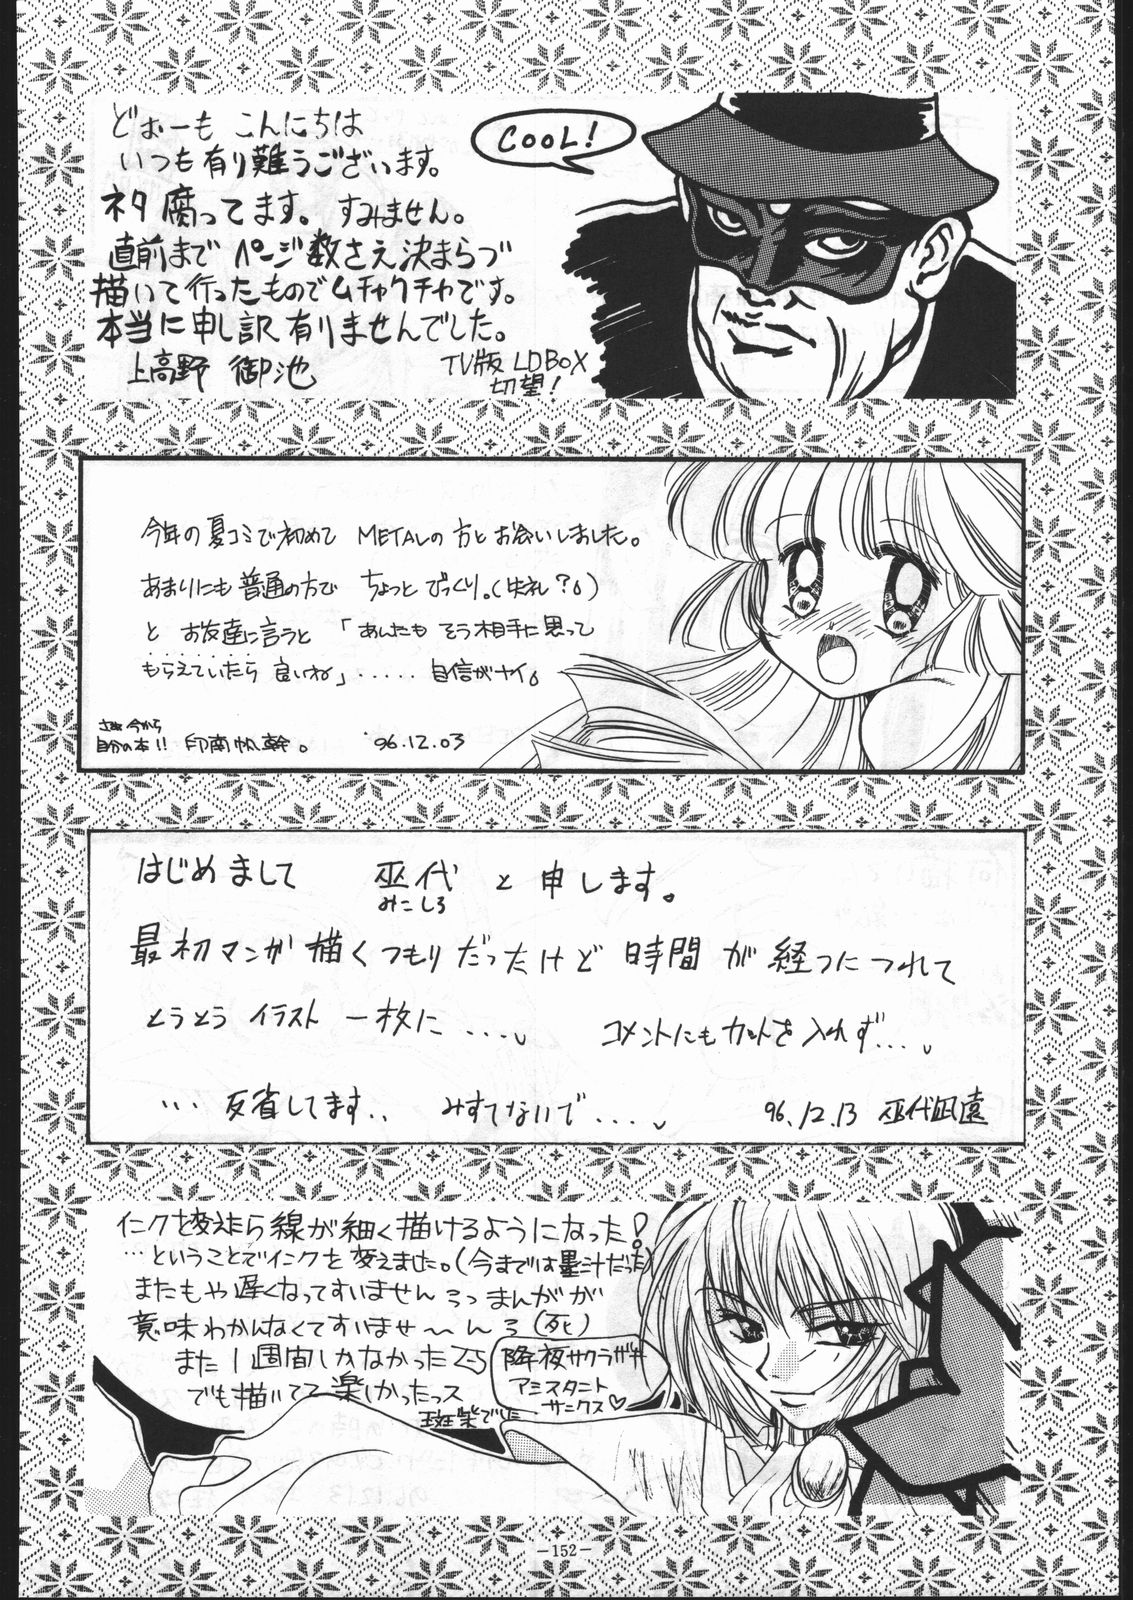 どぉーも こんにちは
いつも有り難うございます。
ネタ腐ってます。すみません。
直前まで ページ数さえ決まらづ
描いて行ったものでムチャクチャです。
本当に申し訳有りませんでした。
上高野 御池
TV版 LDBOX
切望!
COOL!
今年の夏コミで初めて METALの方とお会いしました。
あまりにも普通の方で ちょっとびっくり。(失礼?)
と お友達に言うと 「あんたも そう相手に思って
もらえていたら 良いわね」‥‥‥自信がナイ。
さぁ 今から
自分の本!! 印南帆幹。 '96.12.03
はじめまして 巫代 と 申します。
みこしろ
最初マンガ描くつもりだったけど 時間が経つにつれて
とうとう イラスト 一枚に‥‥。 コメントにもカットを入れず‥‥。
‥‥ 反省してます‥ みすてないで‥‥。 96.12.13 巫代凪遠
インクを変えたら線が細く描けるようになった!
…ということでインクを変えました。(今までは墨汁だった)
またもや遅くなってすいません ううっ まんがが
意味わかんなくてすいませ〜ん う(死)
また1週間しかなかった
でも描いてて楽しかったっス
でした
降夜サクラザキ
アシスタント
サンクス♡
-152-